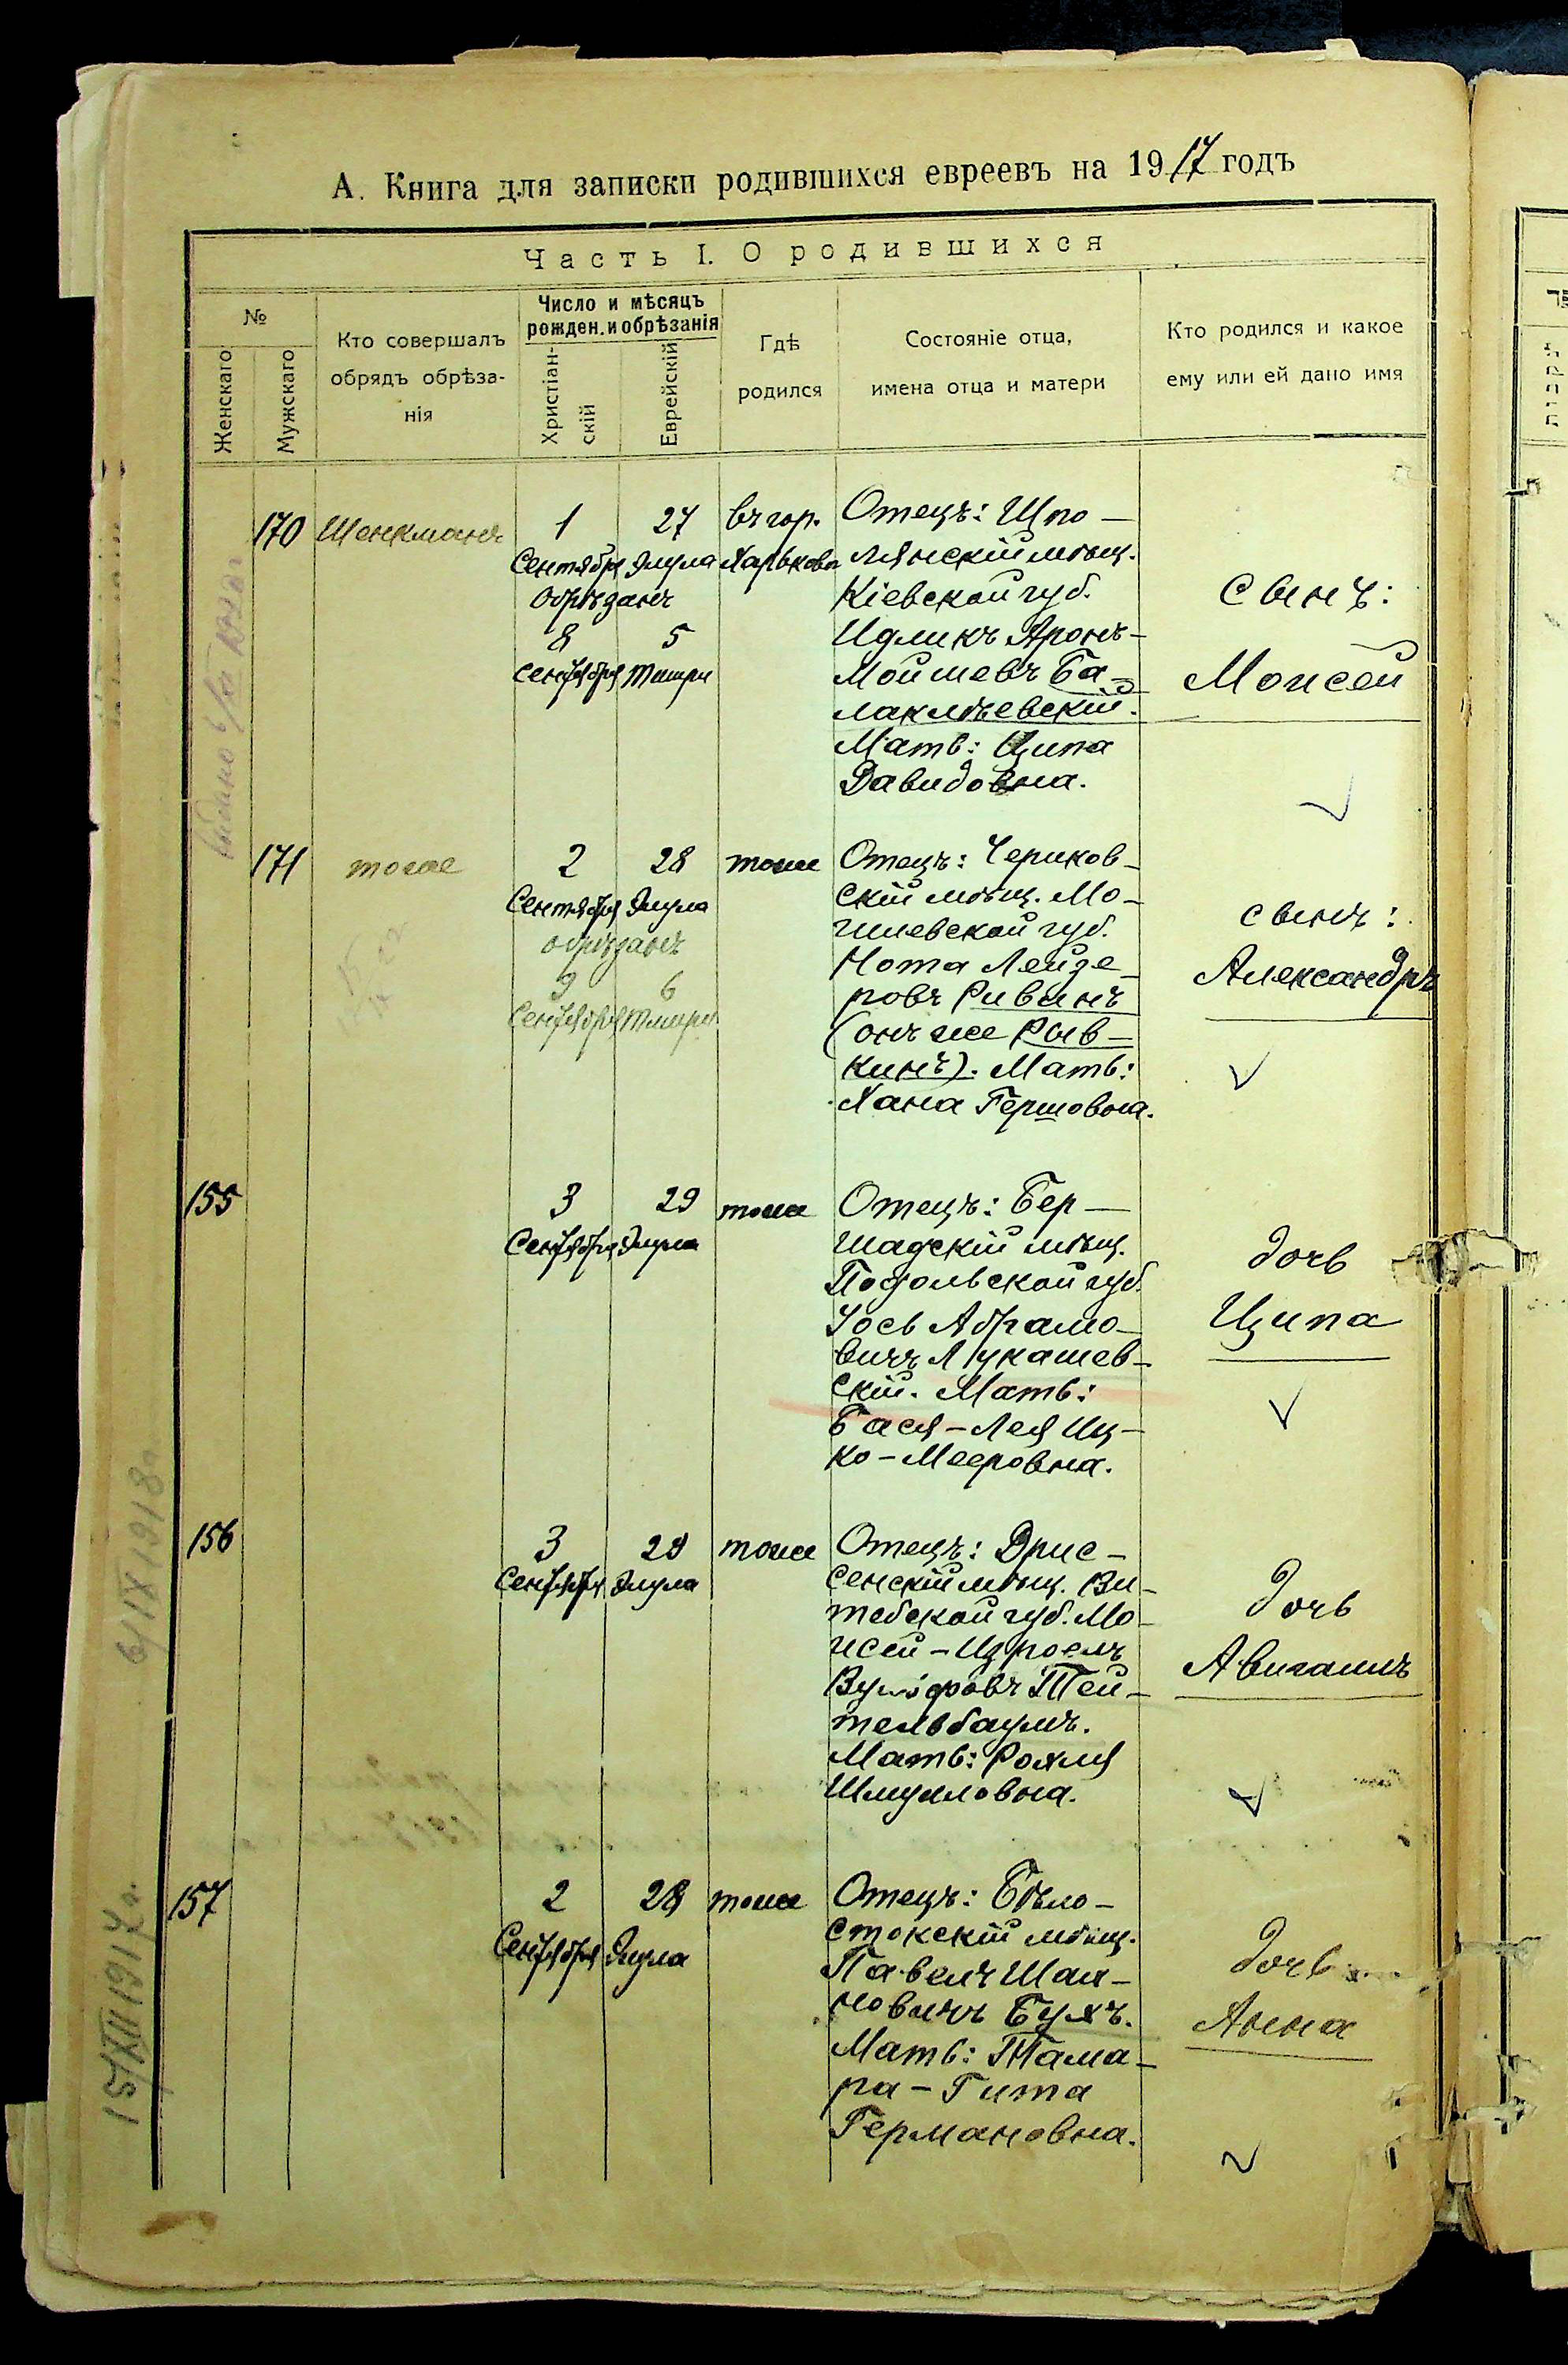 А. Книга для записки родившихся евреевъ на 1917 годъ
Часть I. О родившихся
№
Женскаго
Мужскаго
Кто совершалъ
обрядъ обрѣза-
нія
Число и мѣсяцъ
рожден. и обрѣзанія
Христіан-
скій
Еврейскій
Гдѣ
родился
Состояніе отца,
имена отца и матери
Кто родился и какое
ему или ей дано имя
170
Шенкманъ
1
Сентября
27
Элула
Обрѣзанъ
8
сентября
5
Тишри
въ гор.
Харьковѣ
Отецъ: Шпо-
лянскій мѣщ.
Кіевской губ.
Идликъ Аронъ-
Мойшевъ Ба-
лаклѣевскій.
Мать: Ципа
Давидовна.
Сынъ:
Моисей
171
тоже
2
Сентября
28
Элула
обрѣзанъ
9
Сентября
6
Тишри
тоже
Отецъ: Чериков-
скій мѣщ. Мо-
гилевской губ.
Нота Лейзе-
ровъ Ривинъ
(онъ же Рыв-
кинъ). Мать:
Хана Гершовна.
сынъ:
Александръ
155
3
Сентября
29
Элула
тоже
Отецъ: Бер-
шадскій мѣщ.
Подольской губ.
Іось Абрамо-
вичъ Лукашев-
скій. Мать:
Бася-Лея Иц-
ко-Мееровна.
дочь
Ципа
156
3
Сентября
29
Элула
тоже
Отецъ: Дрис-
сенскій мѣщ. Ви-
тебской губ. Мо-
исей-Изроель
Вульфовъ Тей-
тельбаумъ.
Мать: Рохля
Шмуиловна.
дочь
Авигаиль
157
2
Сентября
28
Элула
тоже
Отецъ: Бѣло-
стокскій мѣщ.
Павелъ Шая-
новичъ Бухъ.
Мать: Тама-
ра-Гита
Германовна.
дочь
Анна
6/IX 1918 г.
15/XII 1917 г.